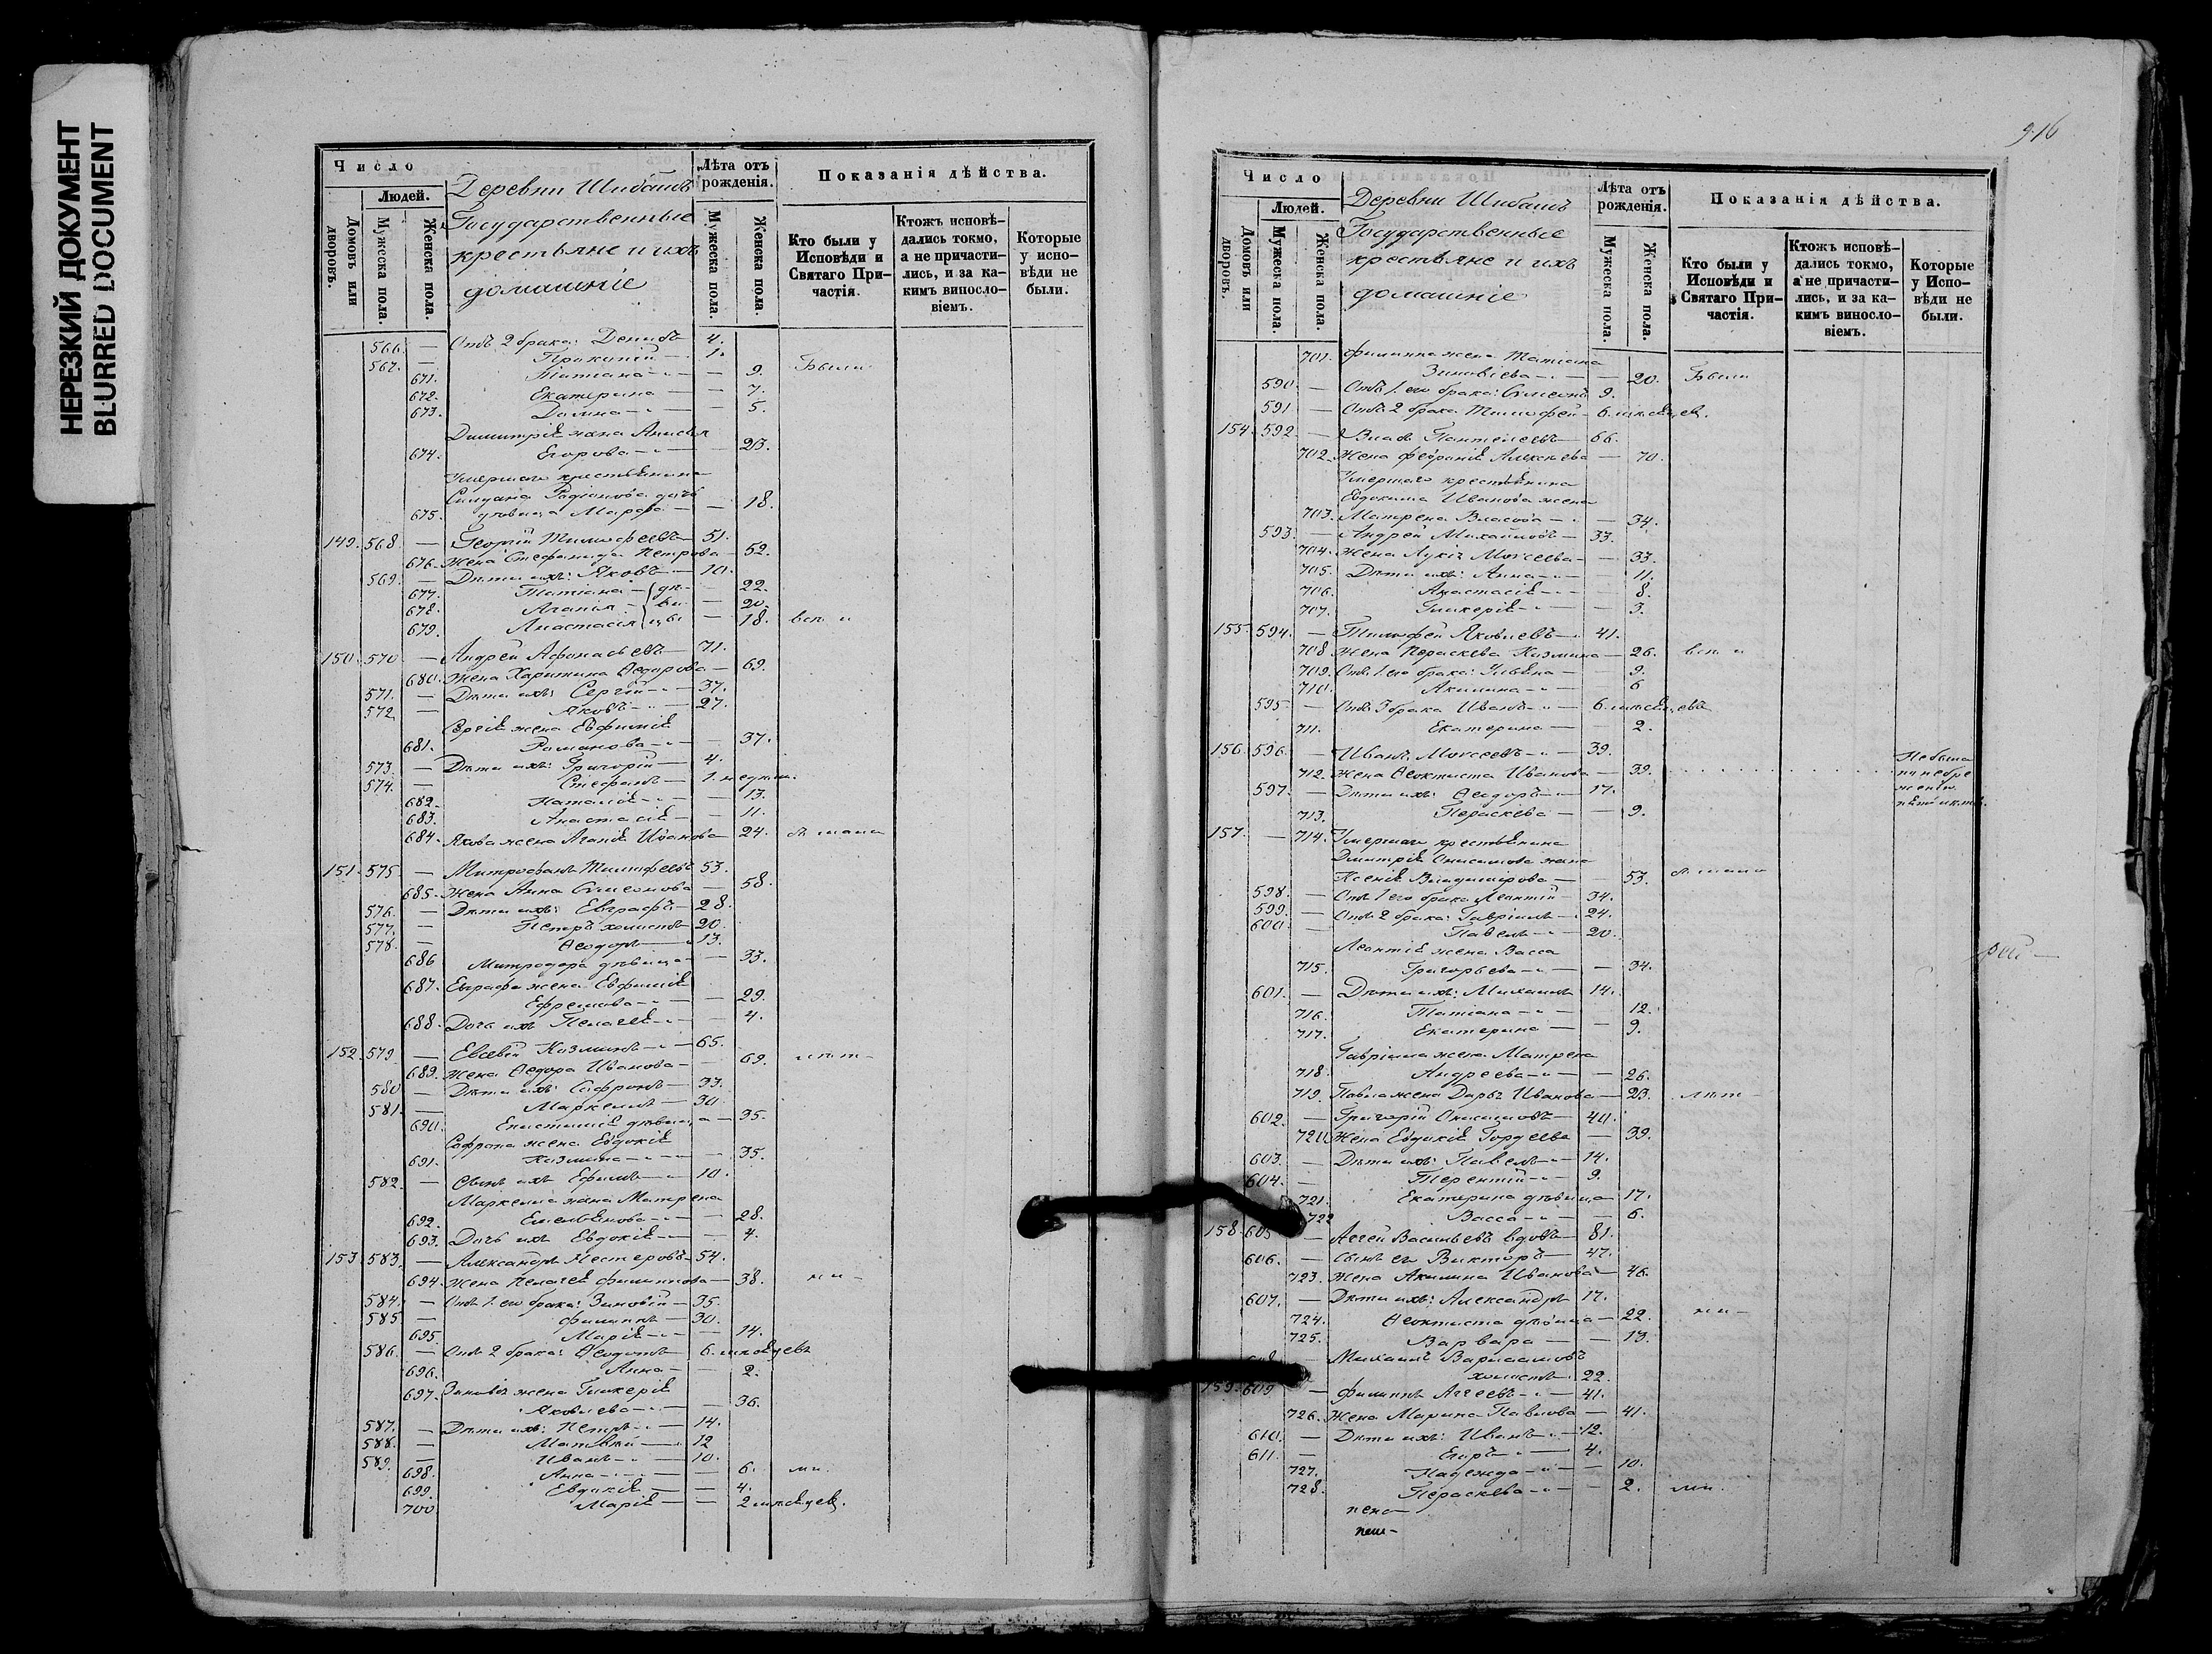 НЕРЕЗКИЙ ДОКУМЕНТ
BLURRED DOCUMENT
Число
Людей.
Домовъ или дворовъ.
Мужеска пола.
Женска пола.
Деревни Шибашъ
Государственные
крестьяне и ихъ
домашніе
Лѣта отъ рожденія.
Мужеска пола.
Женска пола.
Показанія дѣйства.
Кто были у Исповѣди и Святаго Причастія.
Ктожъ исповѣдались токмо, а не причастились, и за какимъ винословіемъ.
Которые у исповѣди не были.
566. — Отъ 2 брака: 4.
567. — 1.
671. Татіана — 9. Были
672. Екатерина — 7.
673. — 5.
Димитрія жена Анисія
674. Егорова — 23.
Умершаго крестьянина
Родіонова дочь
675. дѣвица Марѳа — 18.
149. 568 — Георгій Тимофеевъ 51.
676. Жена Стефанида Петрова — 52.
569. — Дѣти ихъ: Яковъ — 10.
677. Татіана — 22.
678. Агапія — 20.
679. Анастасія — 18.
150. 570 — Андрей Афанасьевъ — 71.
680. Жена Харитина Ѳедорова — 69.
571. — Дѣти ихъ: Сергій — 37.
572. — Яковъ — 27.
Сергія жена Евфимія
681. Романова — 37.
573. — Дѣти ихъ: Григорій — 4.
574. — Стефанъ — 1.
682. Наталія — 13.
683. Анастасія — 11.
684. Якова жена Агапія Иванова — 24.
151. 575 — Митрофанъ Тимофеевъ 53.
685. Жена Анна Симеонова — 58.
576. — Дѣти ихъ: Евграфъ — 28.
577. — Петръ холостъ 20.
578. — Ѳеодоръ — 13.
686 Митродора дѣвица — 33.
687. Евграфа жена Евфимія
Ефремова — 29.
688. Дочь ихъ Пелагея — 4.
152. 579 — Евсевій Козминъ — 65.
689. Жена Ѳедора Иванова — 69.
580 — Дѣти ихъ: Софронъ — 33.
581. — Маркеллъ — 30.
690. Епистимія дѣвица — 35.
Софрона жена Евдокія
691. Козмина — 35.
582. — Сынъ ихъ Ефимъ — 10.
Маркелла жена Матрена
692. Емельянова — 28.
693. Дочь ихъ Евдокія — 4.
153. 583. — Александръ Нестеровъ — 54.
694. Жена Пелагея Филиппова — 38.
584. — Отъ 1. его брака: Зиновій — 35.
585 — Филиппъ — 30.
695. Марія — 14.
586. — Отъ 2 брака: Ѳеодотъ 6. мѣсяцевъ
696. Анна — 2.
697. Зиновія жена Гликерія
Яковлева — 36.
587. — Дѣти ихъ: Петръ — 14.
588. — Матвѣй — 12
589. — Иванъ — 10.
698. Анна — 6.
699. Евдокія — 4.
700. Марія — 2 мѣсяцев.
916
Число
Людей.
Домовъ или дворовъ.
Мужеска пола.
Женска пола.
Деревни Шибашъ
Государственные
крестьяне и ихъ
домашніе
Лѣта отъ рожденія.
Мужеска пола.
Женска пола.
Показанія дѣйства.
Кто были у Исповѣди и Святаго Причастія.
Ктожъ исповѣдались токмо, а не причастились, и за какимъ винословіемъ.
Которые у Исповѣди не были.
701. Филиппа жена Татіана
Зиновіева — 20. Были
590. — Отъ 1. его брака: Симеонъ 9.
591 — Отъ 2 брака Тимофей — 6. мѣсяцев.
154. 592. — Пантелеевъ — 66.
702. Жена Февронія Алексѣева — 70.
Умершаго крестьянина
Евдокима Иванова жена
703. Матрена Власова — 34.
593. — Андрей Михайловъ — 33.
704. Жена Лукія Моисеева — 33.
705. Дѣти ихъ: Анна — 11.
706. Анастасія — 8.
707. Гликерія — 3.
155. 594. — Тимофей Яковлевъ — 41.
708. Жена Параскева Козмина — 26.
709. Отъ 1. его брака: Ульяна — 9.
710. Акилина — 6
595 — Отъ 3 брака Иванъ — 6. мѣсяцевъ
711. Екатерина — 2.
156. 596. — Иванъ Моисеевъ — 39.
712. Жена Ѳеоктиста Иванова — 39. Не были
597. — Дѣти ихъ: Ѳеодоръ — 17.
713. Параскева — 9.
157. — 714. Умершаго крестьянина
Дмитрія Онисимова жена
Ксенія Владимірова — 53.
598. — Отъ 1 его брака Леонтій — 34.
599. — Отъ 2 брака: Гавріилъ — 24.
600. — Павелъ — 20.
Леонтія жена Васса
715. Григорьева — 34.
601. — Дѣти ихъ: Михаилъ 14.
716. Татіана — 12.
717. Екатерина — 9.
Гавріила жена Матрена
718. Андреева — 26.
719. Павла жена Дарья Иванова — 23.
602. — Григорій Онисимовъ — 40.
720. Жена Евдокія Гордеева — 39.
603. — Дѣти ихъ: Павелъ — 14.
604. — Терентій — 9.
721. Екатерина дѣвица 17.
722 Васса — 6.
158. 605 — Аггей Васильевъ вдовъ — 81.
606. — Сынъ ег Викторъ — 47.
723. Жена Акилина Иванова — 46.
607. — Дѣти ихъ: Александръ 17.
724. Ѳеоктиста дѣвица — 22.
725. Варвара — 13.
— Михаилъ Варлаамовъ
холостъ 22.
159. 609 — Филиппъ Аггеевъ — 41.
726. Жена Марина Павлова — 41.
610. — Дѣти ихъ: Иванъ — 12.
611. — Егоръ — 4.
727. Надежда — 10.
728. Параскева — 2.